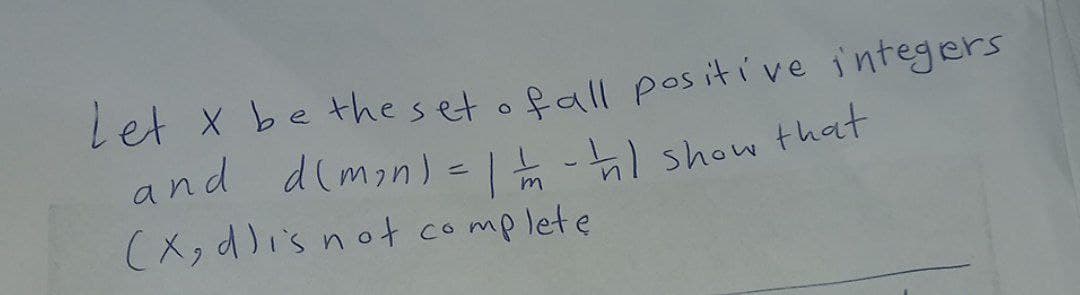 Let X be the set of all positive integers
and d(m,n) = | 1/m - 1/n | show that
(X, d) is not complete